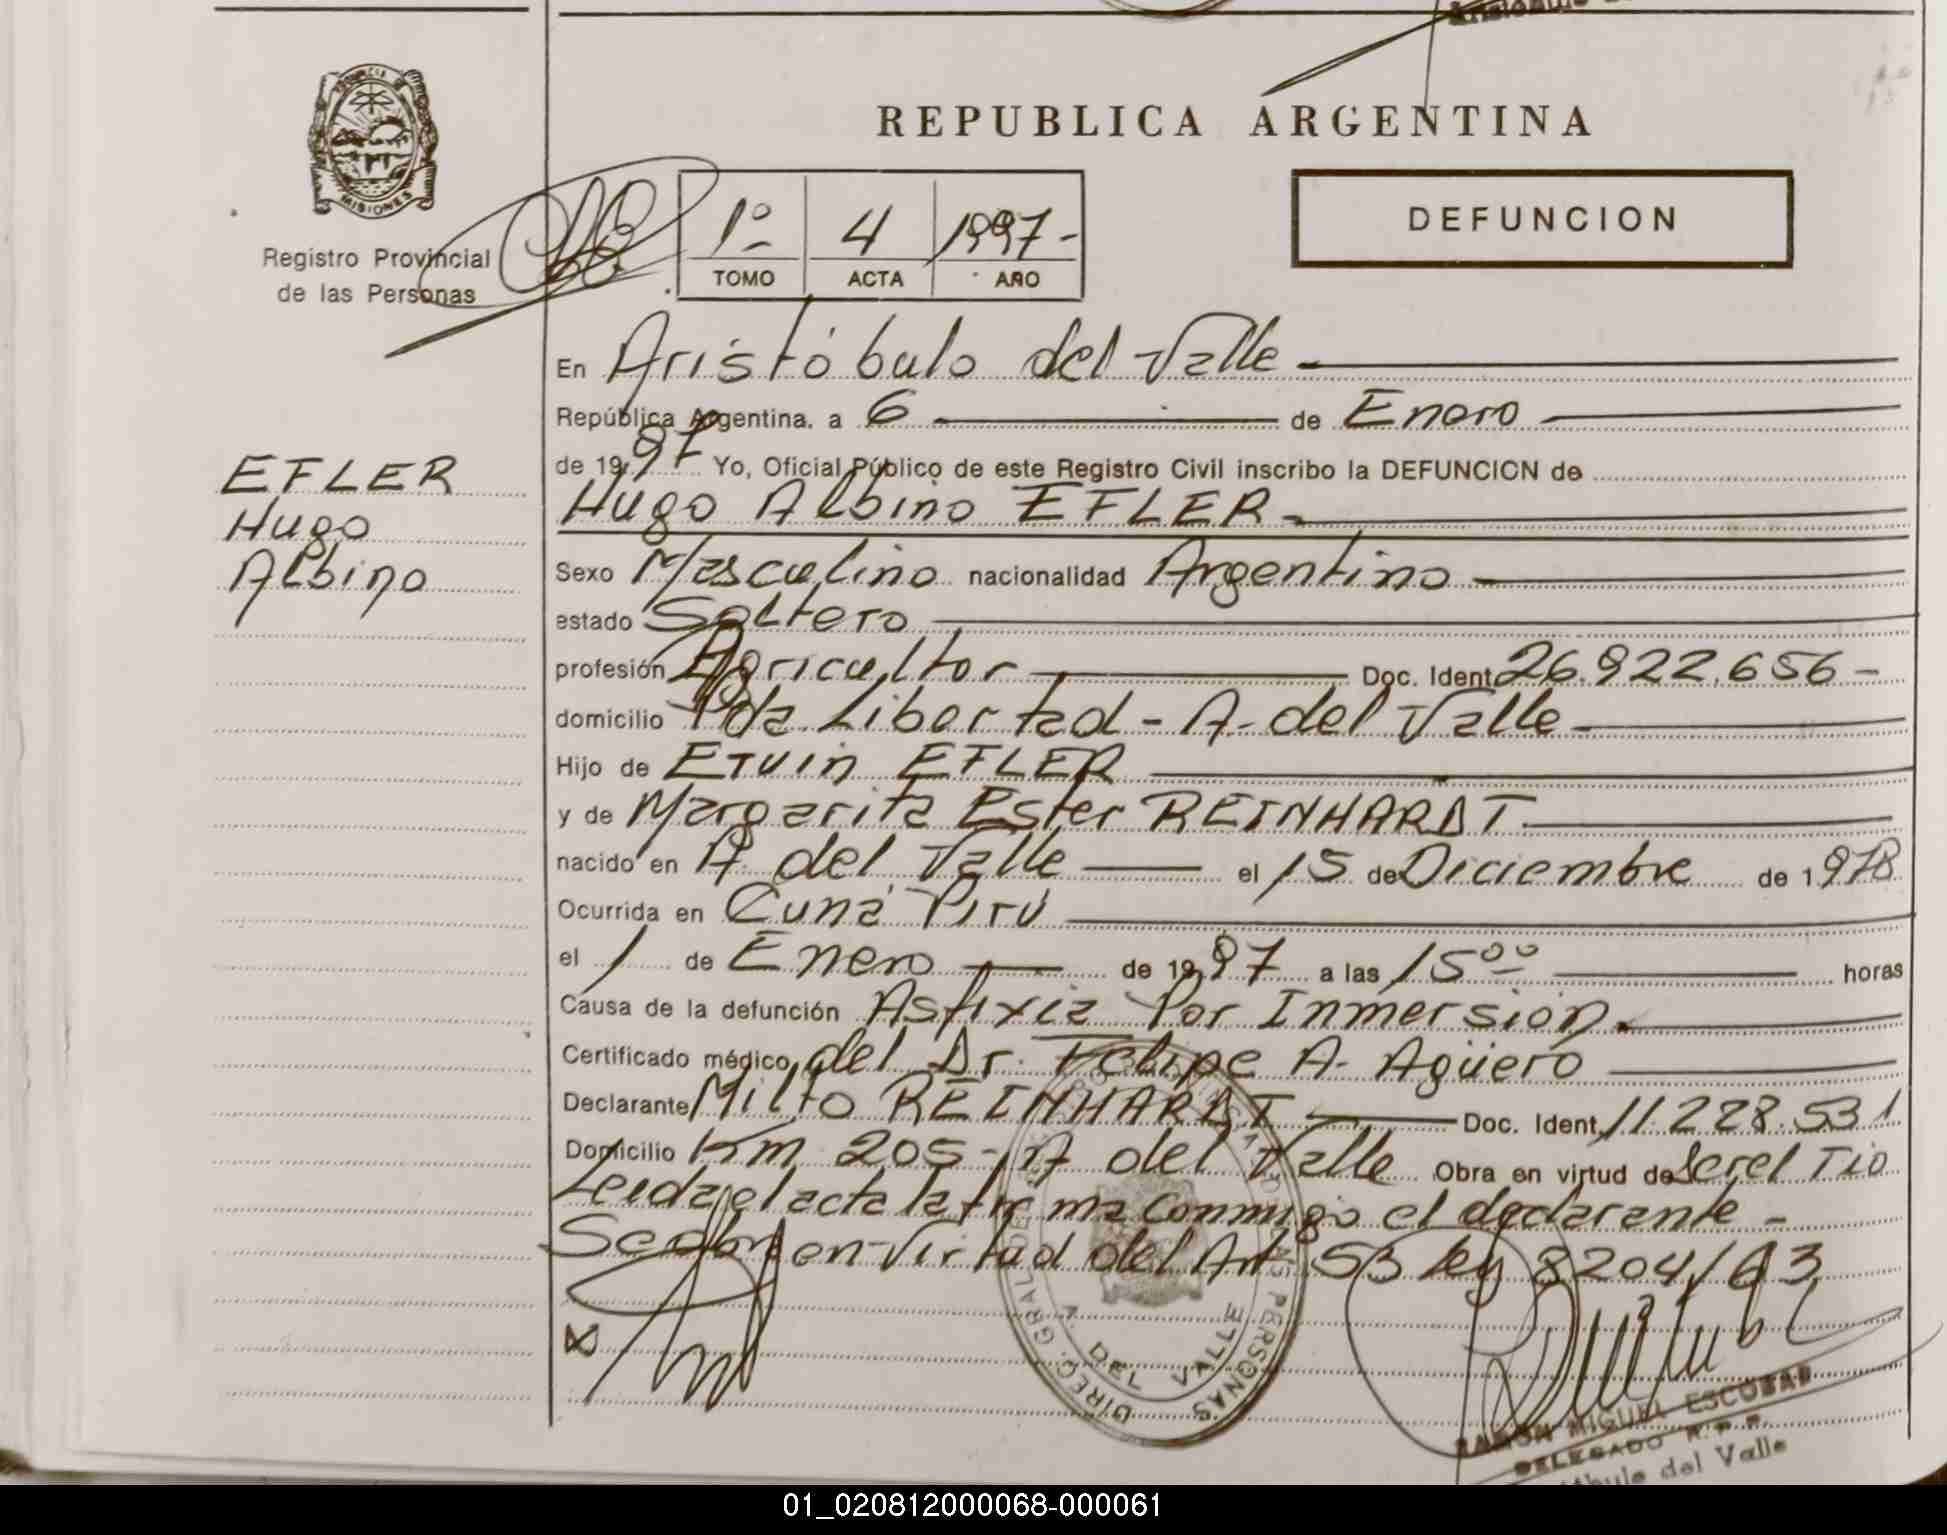 REPUBLICA ARGENTINA
PROVINCIA DE
MISIONES
Registro Provincial
de las Personas
1º 4 1997-
TOMO ACTA AÑO
DEFUNCION
En Aristóbulo del Valle
República Argentina, a 6 de Enero
de 1997 Yo, Oficial Público de este Registro Civil inscribo la DEFUNCION de
Hugo Albino EFLER
EFLER
Hugo
Albino
Sexo Masculino nacionalidad Argentino
estado Soltero
profesión Agricultor Doc. Ident 26.922.656-
domicilio Pda. Libertad - A. del Valle
Hijo de Etvin EFLER
y de Margarita Ester REINHARDT
nacido en A. del Valle el 15 de Diciembre de 1978
Ocurrida en Cuñá Pirú
el 1 de Enero de 1997 a las 15ºº horas
Causa de la defunción Asfixia Por Inmersión.
Certificado médico, del Dr. Felipe A. Agüero
Declarante Milto REINHARDT Doc. Ident, 11.228.531
Domicilio Km 205 - A del Valle Obra en virtud de Ser el Tio
Leida el acta la firma conmigo el declarante -
en virtud del Art. 53 ley 8204/63
DIREC. GRAL. DE PERSONAS
A. DEL VALLE
RAMON MIGUEL ESCOBAR
DELEGADO R.P.P.
del Valle
01_020812000068-000061